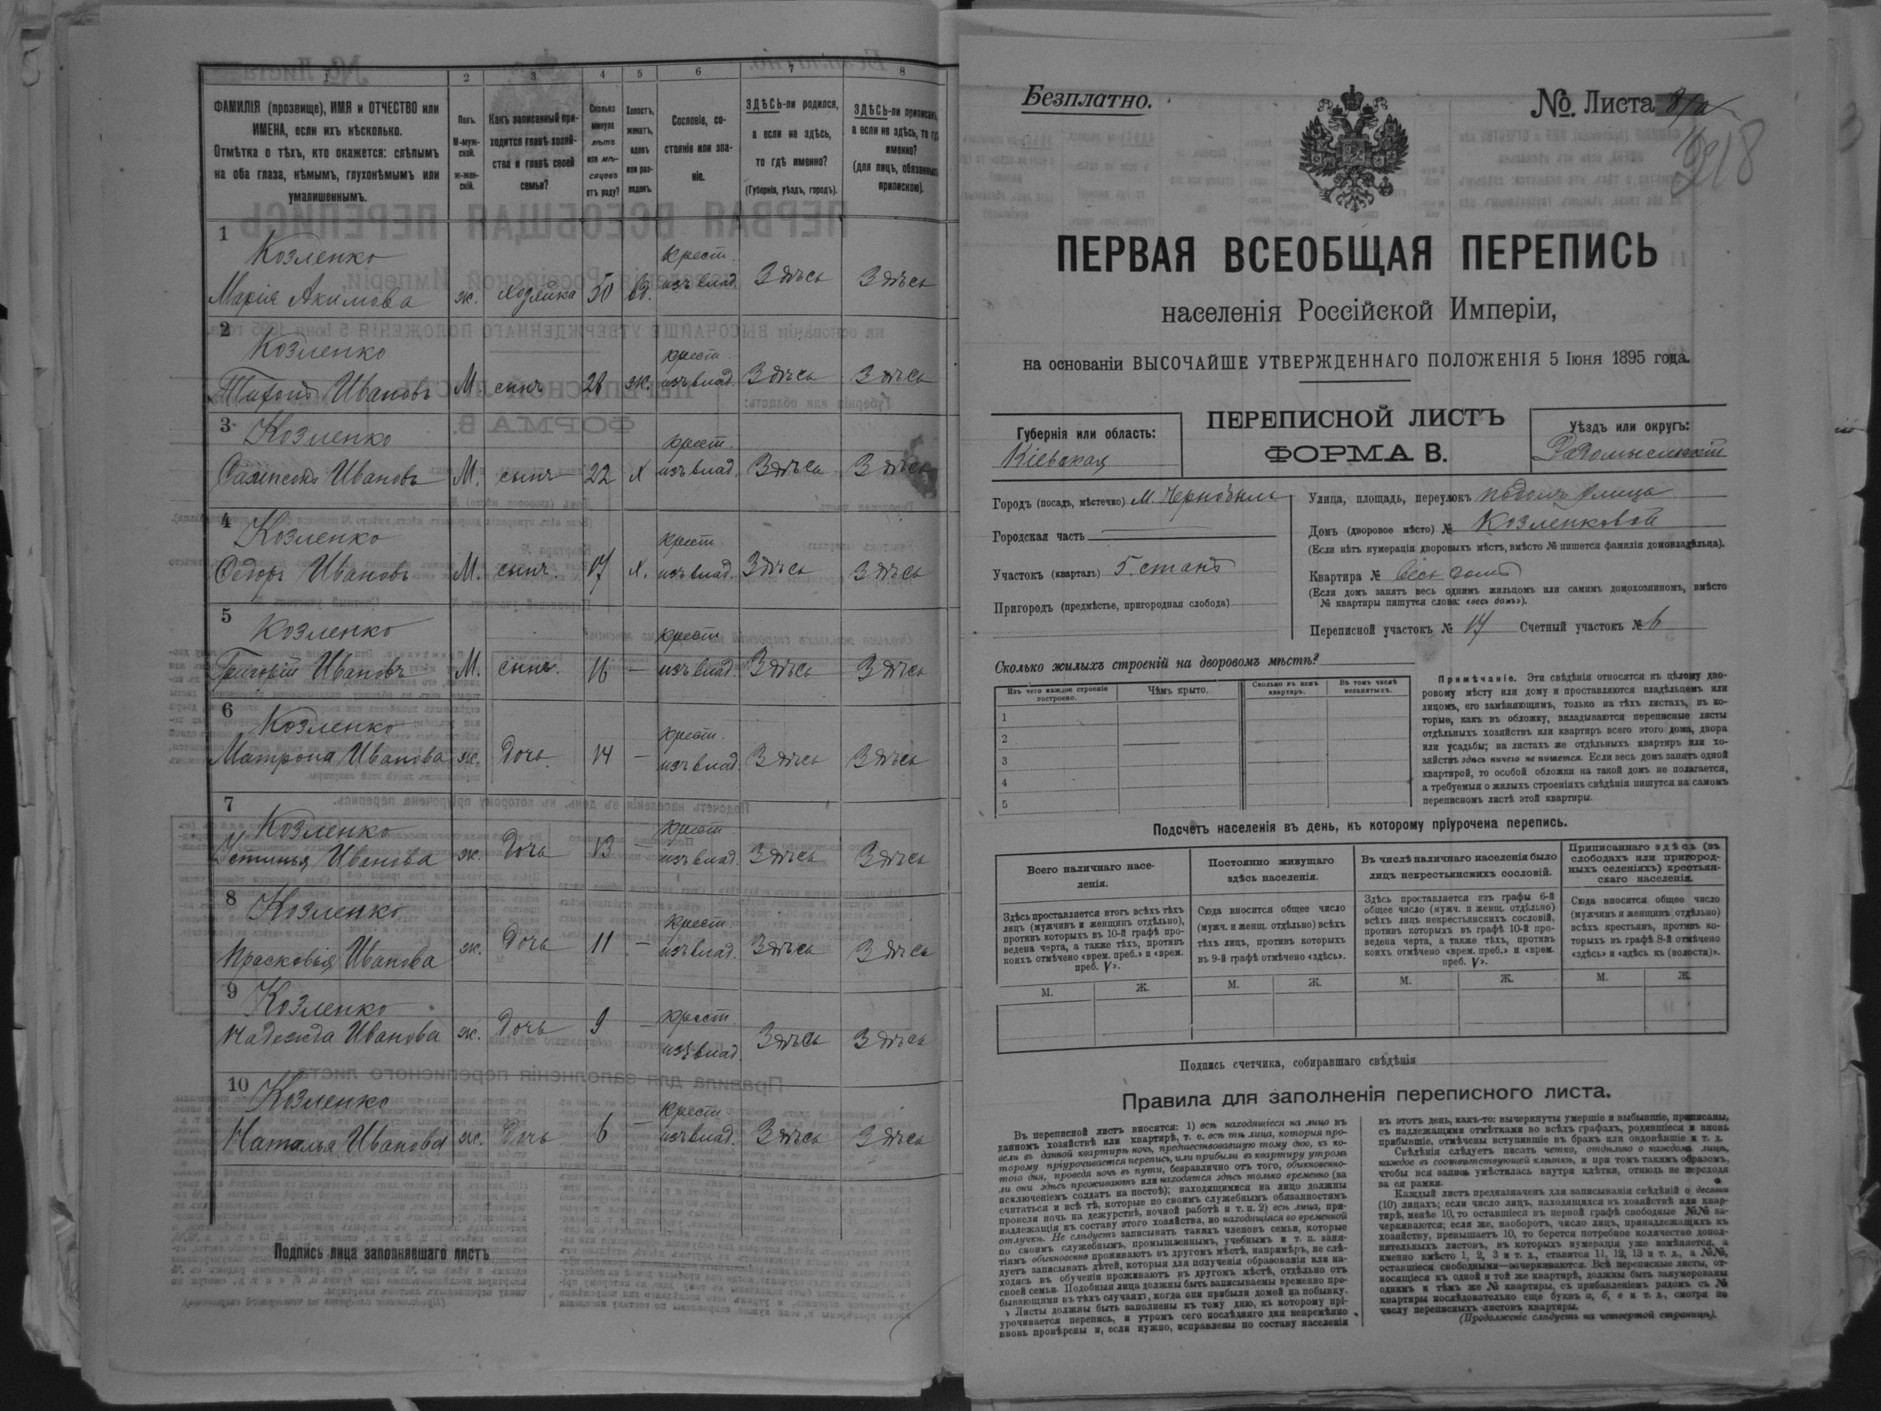 1
2
3
4
5
6
7
8
ФАМИЛІЯ (прозвище), ИМЯ и ОТЧЕСТВО или
ИМЕНА, если ихъ нѣсколько.
Отмѣтка о тѣхъ, кто окажется: слѣпымъ
на оба глаза, нѣмымъ, глухонѣмымъ или
умалишеннымъ.
Полъ.
М-муж-
ской.
ж-жен-
скій.
Какъ записанный при-
ходится главѣ хозяй-
ства и главѣ своей
семьи?
Сколько
минуло
лѣтъ
или мѣ-
сяцевъ
отъ роду?
Холостъ,
женатъ,
вдовъ
или раз-
веденъ.
Сословіе, со-
стояніе или зва-
ніе.
ЗДѢСЬ-ли родился,
а если не здѣсь,
то гдѣ именно?
(Губернія, уѣздъ, городъ).
ЗДѢСЬ-ли приписанъ,
а если не здѣсь, то гдѣ
именно?
(для лицъ, обязанныхъ
припискою).
1 Козленко крест.
Марія Акимова ж. хозяйка 50 вд. изъ влад. Здѣсь Здѣсь
2 Козленко крест.
Тихонъ Ивановъ М. сынъ 28 ж. изъ влад. Здѣсь Здѣсь
3 Козленко крест.
Сампсонъ Ивановъ М. сынъ 22 х изъ влад. Здѣсь Здѣсь
4 Козленко крест.
Ѳедоръ Ивановъ М. сынъ. 17 х. изъ влад. Здѣсь Здѣсь
5 Козленко крест.
Григорій Ивановъ М. сынъ. 16 — изъ влад. Здѣсь Здѣсь
6 Козленко крест.
Матрона Иванова ж. Дочь. 14 — изъ влад. Здѣсь Здѣсь
7 Козленко крест.
Устинья Иванова ж. Дочь 13 — изъ влад. Здѣсь Здѣсь
8 Козленко крест.
Прасковія Иванова ж. Дочь 11 — изъ влад. Здѣсь Здѣсь
9 Козленко крест.
Надежда Иванова ж. Дочь 9 — изъ влад. Здѣсь Здѣсь
10 Козленко крест.
Наталья Иванова ж. Дочь 6 — изъ влад. Здѣсь Здѣсь
Подпись лица заполнявшаго листъ
Безплатно.
№ Листа 8/а
218
ПЕРВАЯ ВСЕОБЩАЯ ПЕРЕПИСЬ
населенія Россійской Имперіи,
на основаніи ВЫСОЧАЙШЕ УТВЕРЖДЕННАГО ПОЛОЖЕНІЯ 5 Іюня 1895 года.
Губернія или область:
Кіевская
ПЕРЕПИСНОЙ ЛИСТЪ
ФОРМА В.
Уѣздъ или округъ:
Радомысльскій
Городъ (посадъ, мѣстечко) м. Чернобыль
Городская часть
Участокъ (кварталъ) 5. станъ
Пригородъ (предмѣстье, пригородная слобода)
Улица, площадь, переулокъ подолъ улица
Домъ (дворовое мѣсто) № Козленковой
(Если нѣтъ нумераціи дворовыхъ мѣстъ, вмѣсто № пишется фамилія домовладѣльца).
Квартира № весь домъ
(Если домъ занятъ весь однимъ жильцомъ или самимъ домохозяиномъ, вмѣсто
№ квартиры пишутся слова: «весь домъ»).
Переписной участокъ № 17 Счетный участокъ № 6
Сколько жилыхъ строеній на дворовомъ мѣстѣ?
Изъ чего каждое строеніе
построено.
Чѣмъ крыто.
Сколько въ немъ
квартиръ.
Въ томъ числѣ
незанятыхъ.
1
2
3
4
5
Примѣчаніе. Эти свѣдѣнія относятся къ цѣлому дво-
ровому мѣсту или дому и проставляются владѣльцемъ или
лицомъ, его замѣняющимъ, только на тѣхъ листахъ, въ ко-
торые, какъ въ обложку, вкладываются переписные листы
отдѣльныхъ хозяйствъ или квартиръ всего этого дома, двора
или усадьбы; на листахъ же отдѣльныхъ квартиръ или хо-
зяйствъ здѣсь ничего не пишется. Если весь домъ занятъ одной
квартирой, то особой обложки на такой домъ не полагается,
а требуемыя о жилыхъ строеніяхъ свѣдѣнія пишутся на самомъ
переписномъ листѣ этой квартиры.
Подсчетъ населенія въ день, къ которому пріурочена перепись.
Всего наличнаго насе-
ленія.
Постоянно живущаго
здѣсь населенія.
Въ числѣ наличнаго населенія было
лицъ некрестьянскихъ сословій.
Приписаннаго здѣсь (въ
слободахъ или пригород-
ныхъ селеніяхъ) крестьян-
скаго населенія.
Здѣсь проставляется итогъ всѣхъ тѣхъ
лицъ (мужчинъ и женщинъ отдѣльно),
противъ которыхъ въ 10-й графѣ про-
ведена черта, а также тѣхъ, противъ
коихъ отмѣчено «врем. преб.» и «врем.
преб. V».
Сюда вносится общее число
(мужч. и женщ. отдѣльно) всѣхъ
тѣхъ лицъ, противъ которыхъ
въ 9-й графѣ отмѣчено «здѣсь».
Здѣсь проставляется изъ графы 6-й
общее число (мужч. и женщ. отдѣльно)
всѣхъ лицъ некрестьянскихъ сословій,
противъ которыхъ въ графѣ 10-й про-
ведена черта, а также тѣхъ, противъ
коихъ отмѣчено «врем. преб.» и «врем.
преб. V».
Сюда вносится общее число
(мужчинъ и женщинъ отдѣльно)
всѣхъ крестьянъ, противъ ко-
торыхъ въ графѣ 8-й отмѣчено
«здѣсь» и «здѣсь къ (волости)».
М. Ж. М. Ж. М. Ж. М. Ж.
Подпись счетчика, собиравшаго свѣдѣнія
Правила для заполненія переписного листа.
Въ переписной листъ вносятся: 1) всѣ находящіеся на лицо въ
данномъ хозяйствѣ или квартирѣ, т. е. всѣ тѣ лица, которыя про-
вели въ данной квартирѣ ночь, предшествовавшую тому дню, къ ко-
торому пріурочивается перепись, или прибыли въ квартиру утромъ
того дня, проведя ночь въ пути, безразлично отъ того, обыкновенно-
ли они здѣсь проживаютъ или находятся здѣсь только временно (за
исключеніемъ солдатъ на постоѣ); находящимися на лицо должны
считаться и всѣ тѣ, которые по своимъ служебнымъ обязанностямъ
провели ночь на дежурствѣ, ночной работѣ и т. п. 2) всѣ лица, при-
надлежащія къ составу этого хозяйства, но находящіяся во временной
отлучкѣ. Не слѣдуетъ записывать такихъ членовъ семьи, которые
по своимъ служебнымъ, промышленнымъ, учебнымъ и т. п. заня-
тіямъ обыкновенно проживаютъ въ другомъ мѣстѣ, напримѣръ, не слѣ-
дуетъ записывать дѣтей, которыя для полученія образованія или на-
ходясь въ обученіи проживаютъ въ другомъ мѣстѣ, отдѣльно отъ
своей семьи. Подобныя лица должны быть записываемы временно пре-
бывающими въ тѣхъ случаяхъ, когда они прибыли домой на побывку.
Листы должны быть заполнены къ тому дню, къ которому прі-
урочивается перепись, и утромъ сего послѣдняго дня непремѣнно
вновь провѣрены и, если нужно, исправлены по составу населенія
въ этотъ день, какъ-то: вычеркнуты умершіе и выбывшіе, приписаны,
съ надлежащими отмѣтками во всѣхъ графахъ, родившіеся и вновь
прибывшіе, отмѣчены вступившіе въ бракъ или овдовѣвшіе и т. д.
Свѣдѣнія слѣдуетъ писать четко, отдѣльно о каждомъ лицѣ,
каждое въ соотвѣтствующей клѣткѣ, и при томъ такимъ образомъ,
чтобы вся запись умѣстилась внутри клѣтки, отнюдь не переходя
за ея рамки.
Каждый листъ предназначенъ для записыванія свѣдѣній о десяти
(10) лицахъ; если число лицъ, находящихся въ хозяйствѣ или квар-
тирѣ, менѣе 10, то оставшіеся въ первой графѣ свободные №№ за-
черкиваются; если же, наоборотъ, число лицъ, принадлежащихъ къ
хозяйству, превышаетъ 10, то берется потребное количество допол-
нительныхъ листовъ, въ которыхъ нумерація уже измѣняется, а
именно вмѣсто 1, 2, 3 и т. д., ставится 11, 12, 13 и т. д., а №№,
оставшіеся свободными—зачеркиваются. Всѣ переписные листы, от-
носящіеся къ одной и той же квартирѣ, должны быть занумерованы
однимъ и тѣмъ же № квартиры, съ прибавленіемъ рядомъ съ №
квартиры послѣдовательно еще буквъ а, б, в и т. д., смотря по
числу переписныхъ листовъ квартиры.
(Продолженіе слѣдуетъ на четвертой страницѣ).